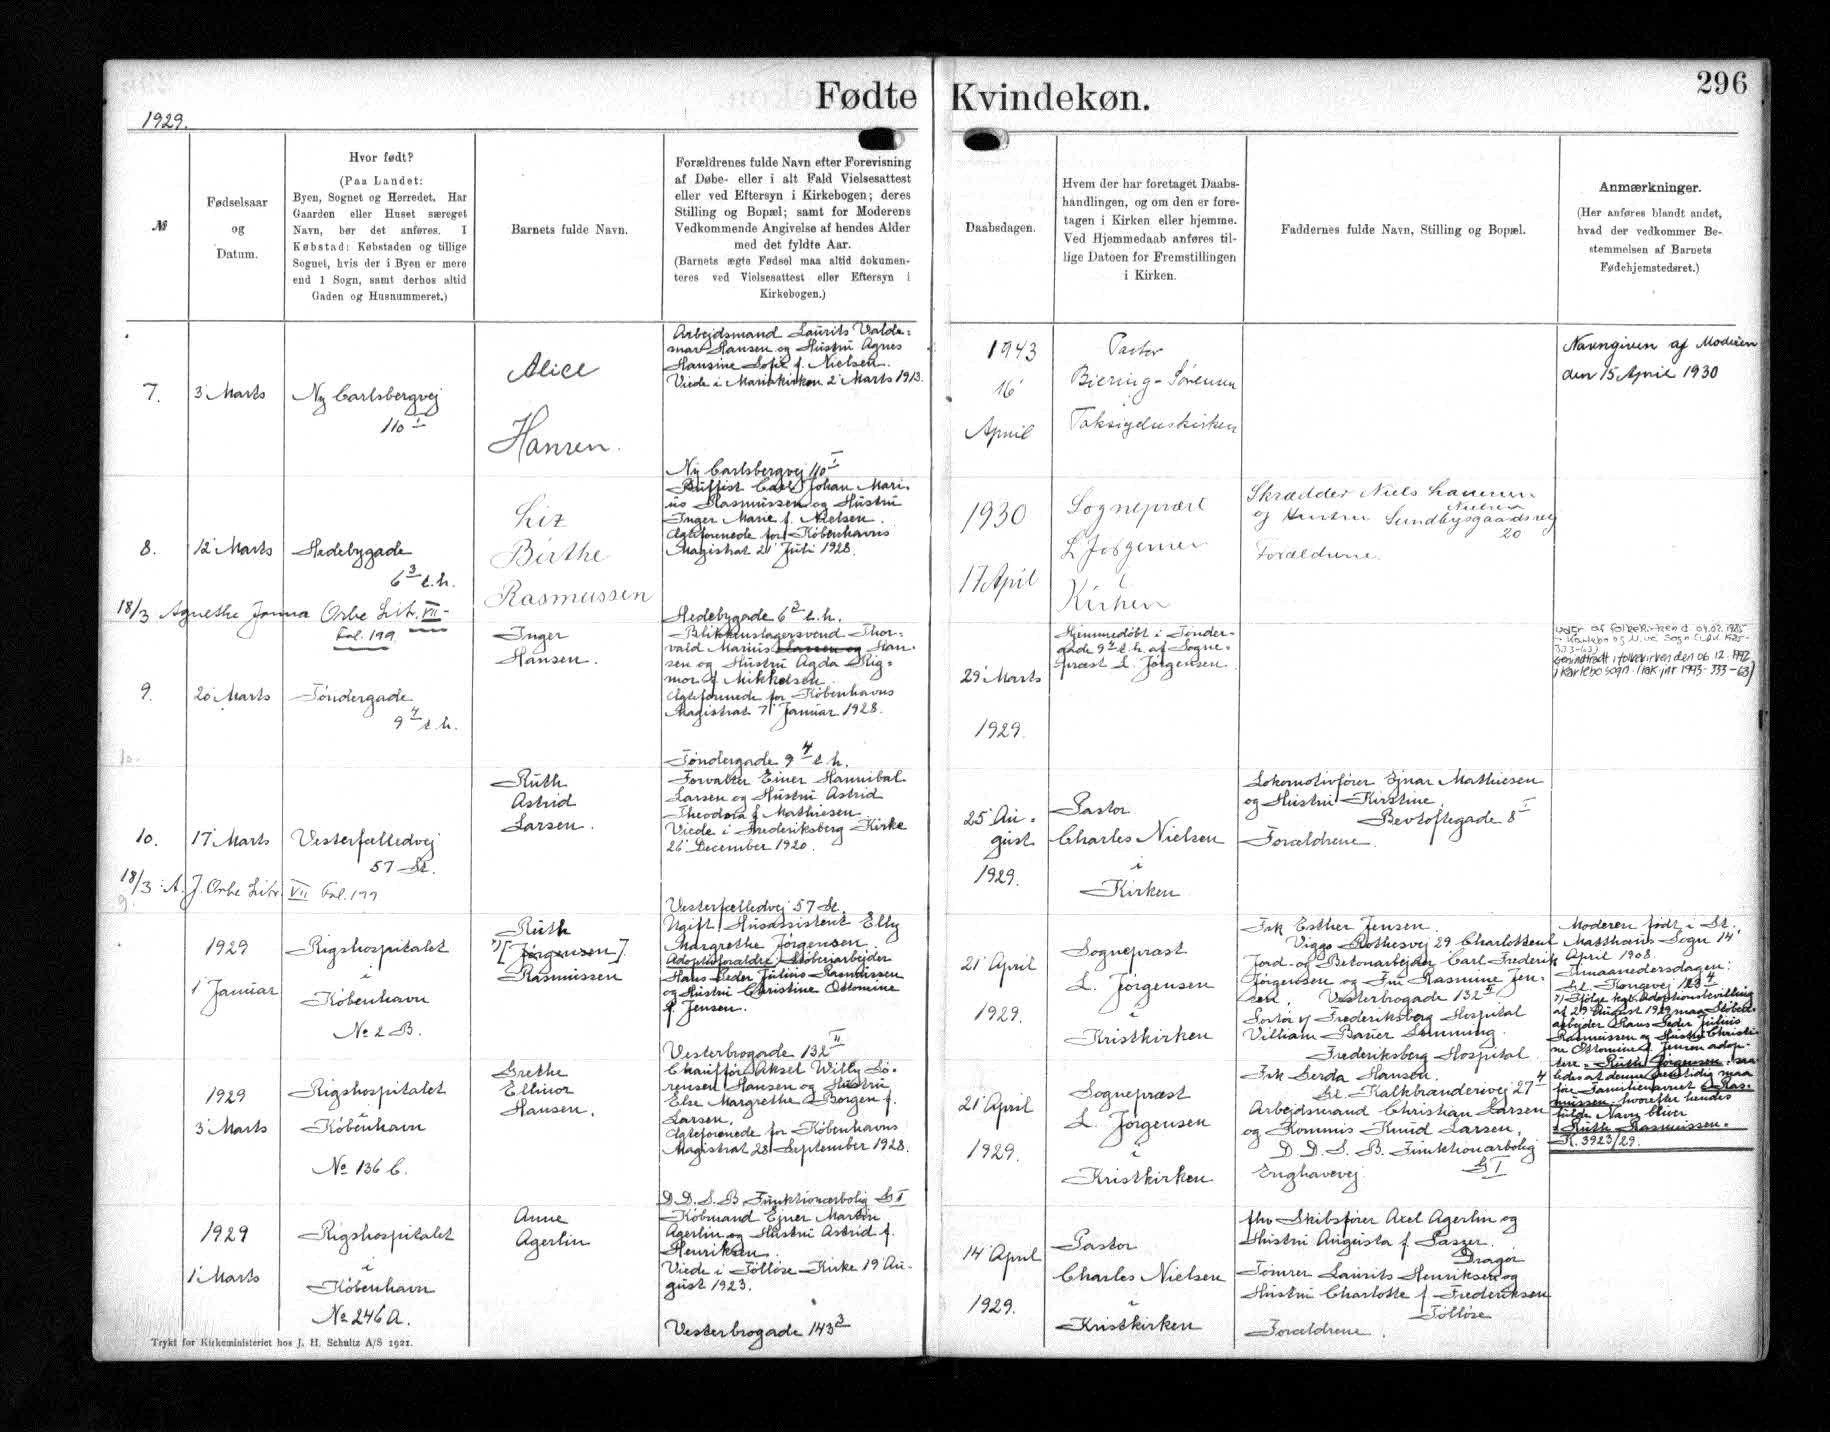 296
Fødte Kvindekøn.
1929.
№
Fødselsaar
og
Datum.
Hvor født?
(Paa Landet:
Byen, Sognet og Herredet. Har
Gaarden eller Huset særeget
Navn, bør det anføres. I
Købstad: Købstaden og tillige
Sognet, hvis der i Byen er mere
end 1 Sogn, samt derhos altid
Gaden og Husnummeret.)
Barnets fulde Navn.
Forældrenes fulde Navn efter Forevisning
af Døbe- eller i alt Fald Vielsesattest
eller ved Eftersyn i Kirkebogen; deres
Stilling og Bopæl; samt for Moderens
Vedkommende Angivelse af hendes Alder
med det fyldte Aar.
(Barnets ægte Fødsel maa altid dokumen-
teres ved Vielsesattest eller Eftersyn i
Kirkebogen.)
Daabsdagen.
Hvem der har foretaget Daabs-
handlingen, og om den er fore-
tagen i Kirken eller hjemme.
Ved Hjemmedaab anføres til-
lige Datoen for Fremstillingen
i Kirken.
Faddernes fulde Navn, Stilling og Bopæl.
Anmærkninger.
(Her anføres blandt andet,
hvad der vedkommer Be-
stemmelsen af Barnets
Fødehjemstedsret.)
7.
3' Marts
Ny Carlsbergvej
110 I
Alice
Hansen.
Arbejdsmand Laurits Valde-
mar Hansen og Hustru Agnes
Hansine Sofie f. Nielsen.
Viede i Mariakirken 2' Marts 1913.
Ny Carlsbergvej 110 I
1943
16'
April
Pastor
Biering-Sørensen
Navngiven af Moderen
den 15 April 1930
8.
12' Marts
Hedebygade
6 3 t.h.
Liz
Birthe
Rasmussen
Carl Johan Mari-
us Rasmussen og Hustru
Inger Marie f. Nielsen.
Ægteforenede for Københavns
Magistrat 21' Juli 1928.
Hedebygade 6 3 t.h.
1930
17' April
Sognepræst
L Jørgensen
i
Kirken
Skrædder Niels
Nielsen
og Hustru Sundbygaardsvej
20
Forældrene.
18/3 Agnethe Janna Orbe Litr. VII
Fol. 199
9.
20' Marts
Tøndergade
9 4 t.h.
Inger
Hansen.
Blikkenslagersvend Thor-
vald Marius Larsen og Han-
sen og Hustru Agda Rig-
mor f. Mikkelsen.
Ægteforenede for Københavns
Magistrat 7' Januar 1928.
Tøndergade 9 4 t.h.
29' Marts
1929.
Hjemmedøbt i Tønder-
gade 9 4 t.h. af Sogne-
præst L. Jørgensen.
Udtr. af folkekirken d. 04.02.1985
333-63)
Genindtrådt i folkekirken den 06.12.1992
i Karlebo sogn. (lak. jnr 1993-333-63)
10.
10.
17' Marts
Vesterfælledvej
57 St.
Ruth
Astrid
Larsen.
Forvalter Einer Hannibal
Larsen og Hustru Astrid
Theodora f. Mathiesen.
Viede i Frederiksberg Kirke
26' December 1920.
Vesterfælledvej 57 St.
25' Au-
gust
1929.
Pastor
Charles Nielsen
i
Kirken
Lokomotivfører Ejnar Mathiesen
og Hustru Kirstine,
Bevtoftegade 8 I
Forældrene.
18/3 A. J. Orbe Litr. VII Fol. 199
9.
1929
1' Januar
Rigshospitalet
i
København
№ 2 B.
Ruth
*)[Jørgensen].
Rasmussen
Ugift Husassistent Elly
Margrethe Jørgensen.
Adoptivforældre: Støberiarbejder
Hans Peder Julius Rasmussen
og Hustru Christine Ottomine
f. Jensen.
Vesterbrogade 132 II
21' April
1929.
Sognepræst
L. Jørgensen
i
Kristkirken
Frk Esther Jensen.
Viggo Rothesvej 29 Charlottenl
Jord- og Betonarbejder Carl Frederik
Jørgensen og Fru Rasmine Jen-
sen. Vesterbrogade 132 II
Portør v/ Frederiksberg Hospital
Villiam Bauer Lønning.
Frederiksberg Hospital.
Moderen født i St.
Matthæus Sogn 14'
April 1908.
Timaanedersdagen:
Gl. Kongevej 123 I
*) Ifølge kgl. Adoptionsbevilling
af 29' August 1929 maa Støberi-
arbejder Hans Peder Julius
Rasmussen og Hustru Christi-
ne Ottomine f. Jensen adop-
tere "Ruth Jørgensen" saa-
ledes at denne fremtidig maa
føre Familienavnet "Ras-
mussen", hvorefter hendes
fulde Navn bliver
"Ruth Rasmussen".
K. 3923/29.
1929
3' Marts
Rigshospitalet
i
København
№ 136 C.
Grethe
Ellinor
Hansen.
Chauffør Aksel Willy Sø-
rensen Hansen og Hustru
Else Margrethe Borgen f.
Larsen.
Ægteforenede for Københavns
Magistrat 28' September 1928.
D.D.S.B Funktionærbolig G I
21' April
1929.
Sognepræst
L. Jørgensen
i
Kristkirken
Frk Gerda Hansen.
Gl. Kalkbrænderivej 27 4
Arbejdsmand Christian Larsen
og Kommis Knud Larsen.
D. D. S. B. Funktionærbolig
G I
Enghavevej
1929
1' Marts
Rigshospitalet
i
København
№ 246 A.
Anne
Agerlin
Købmand Ejner Martin
Agerlin og Hustru Astrid f.
Henriksen.
Viede i Tølløse Kirke 19' Au-
gust 1923.
Vesterbrogade 143 3
14' April
1929.
Pastor
Charles Nielsen
i
Kristkirken
fhv Skibsfører Axel Agerlin og
Hustru Augusta f.
Dragør
Tømrer Laurits Henriksen og
Hustru Charlotte f. Frederiksen
Tølløse
Forældrene.
Trykt for Kirkeministeriet hos J. H. Schultz A/S 1921.